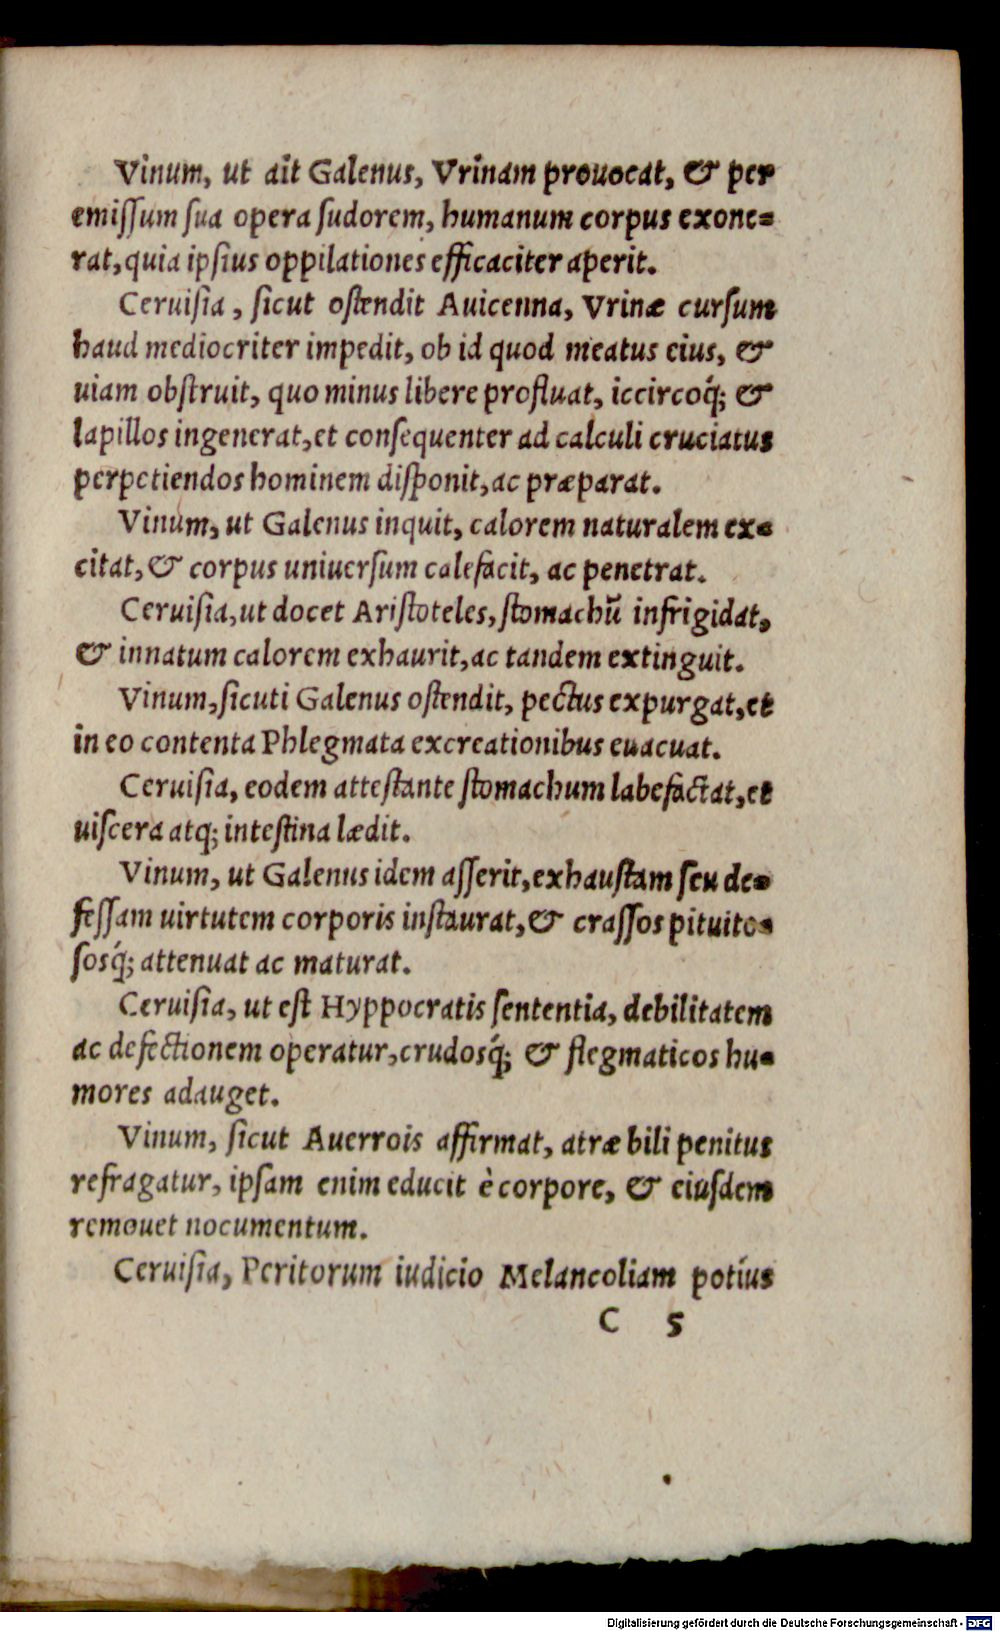 Vinum, ut ait Galenus, Vrinam prouocat, & per
emiſſum ſua opera ſudorem, humanum corpus exone⸗
rat, quia ipſius oppilationes efficaciter aperit.
Ceruiſia, ſicut oſtendit Auicenna, Vrinæ curſum
haud mediocriter impedit, ob id quod meatus eius, &
uiam obſtruit, quo minus libere profluat, iccircoq́; &
lapillos ingenerat, et conſequenter ad calculi cruciatus
perpetiendos hominem diſponit, ac præparat.
Vinum, ut Galenus inquit, calorem naturalem ex⸗
citat, & corpus uniuerſum calefacit, ac penetrat.
Ceruiſia, ut docet Ariſtoteles, ſtomachū infrigidat,
& innatum calorem exhaurit, ac tandem extinguit.
Vinum, ſicuti Galenus oſtendit, pectus expurgat, et
in eo contenta Phlegmata excreationibus euacuat.
Ceruiſia, eodem atteſtante ſtomachum labefactat, et
uiſcera atq; inteſtina lædit.
Vinum, ut Galenus idem aſſerit, exhauſtam ſeu de⸗
feſſam uirtutem corporis inſtaurat, & craſſos pituito⸗
ſosq́; attenuat ac maturat.
Ceruiſia, ut eſt Hyppocratis ſententia, debilitatem
ac defectionem operatur, crudosq́; & flegmaticos hu⸗
mores adauget.
Vinum, ſicut Auerrois affirmat, atræ bili penitus
refragatur, ipſam enim educit è corpore, & eiuſdem
remouet nocumentum.
Ceruiſia, Peritorum iudicio Melancoliam potius
C 5
Digitalisierung gefördert durch die Deutsche Forschungsgemeinschaft - DFG